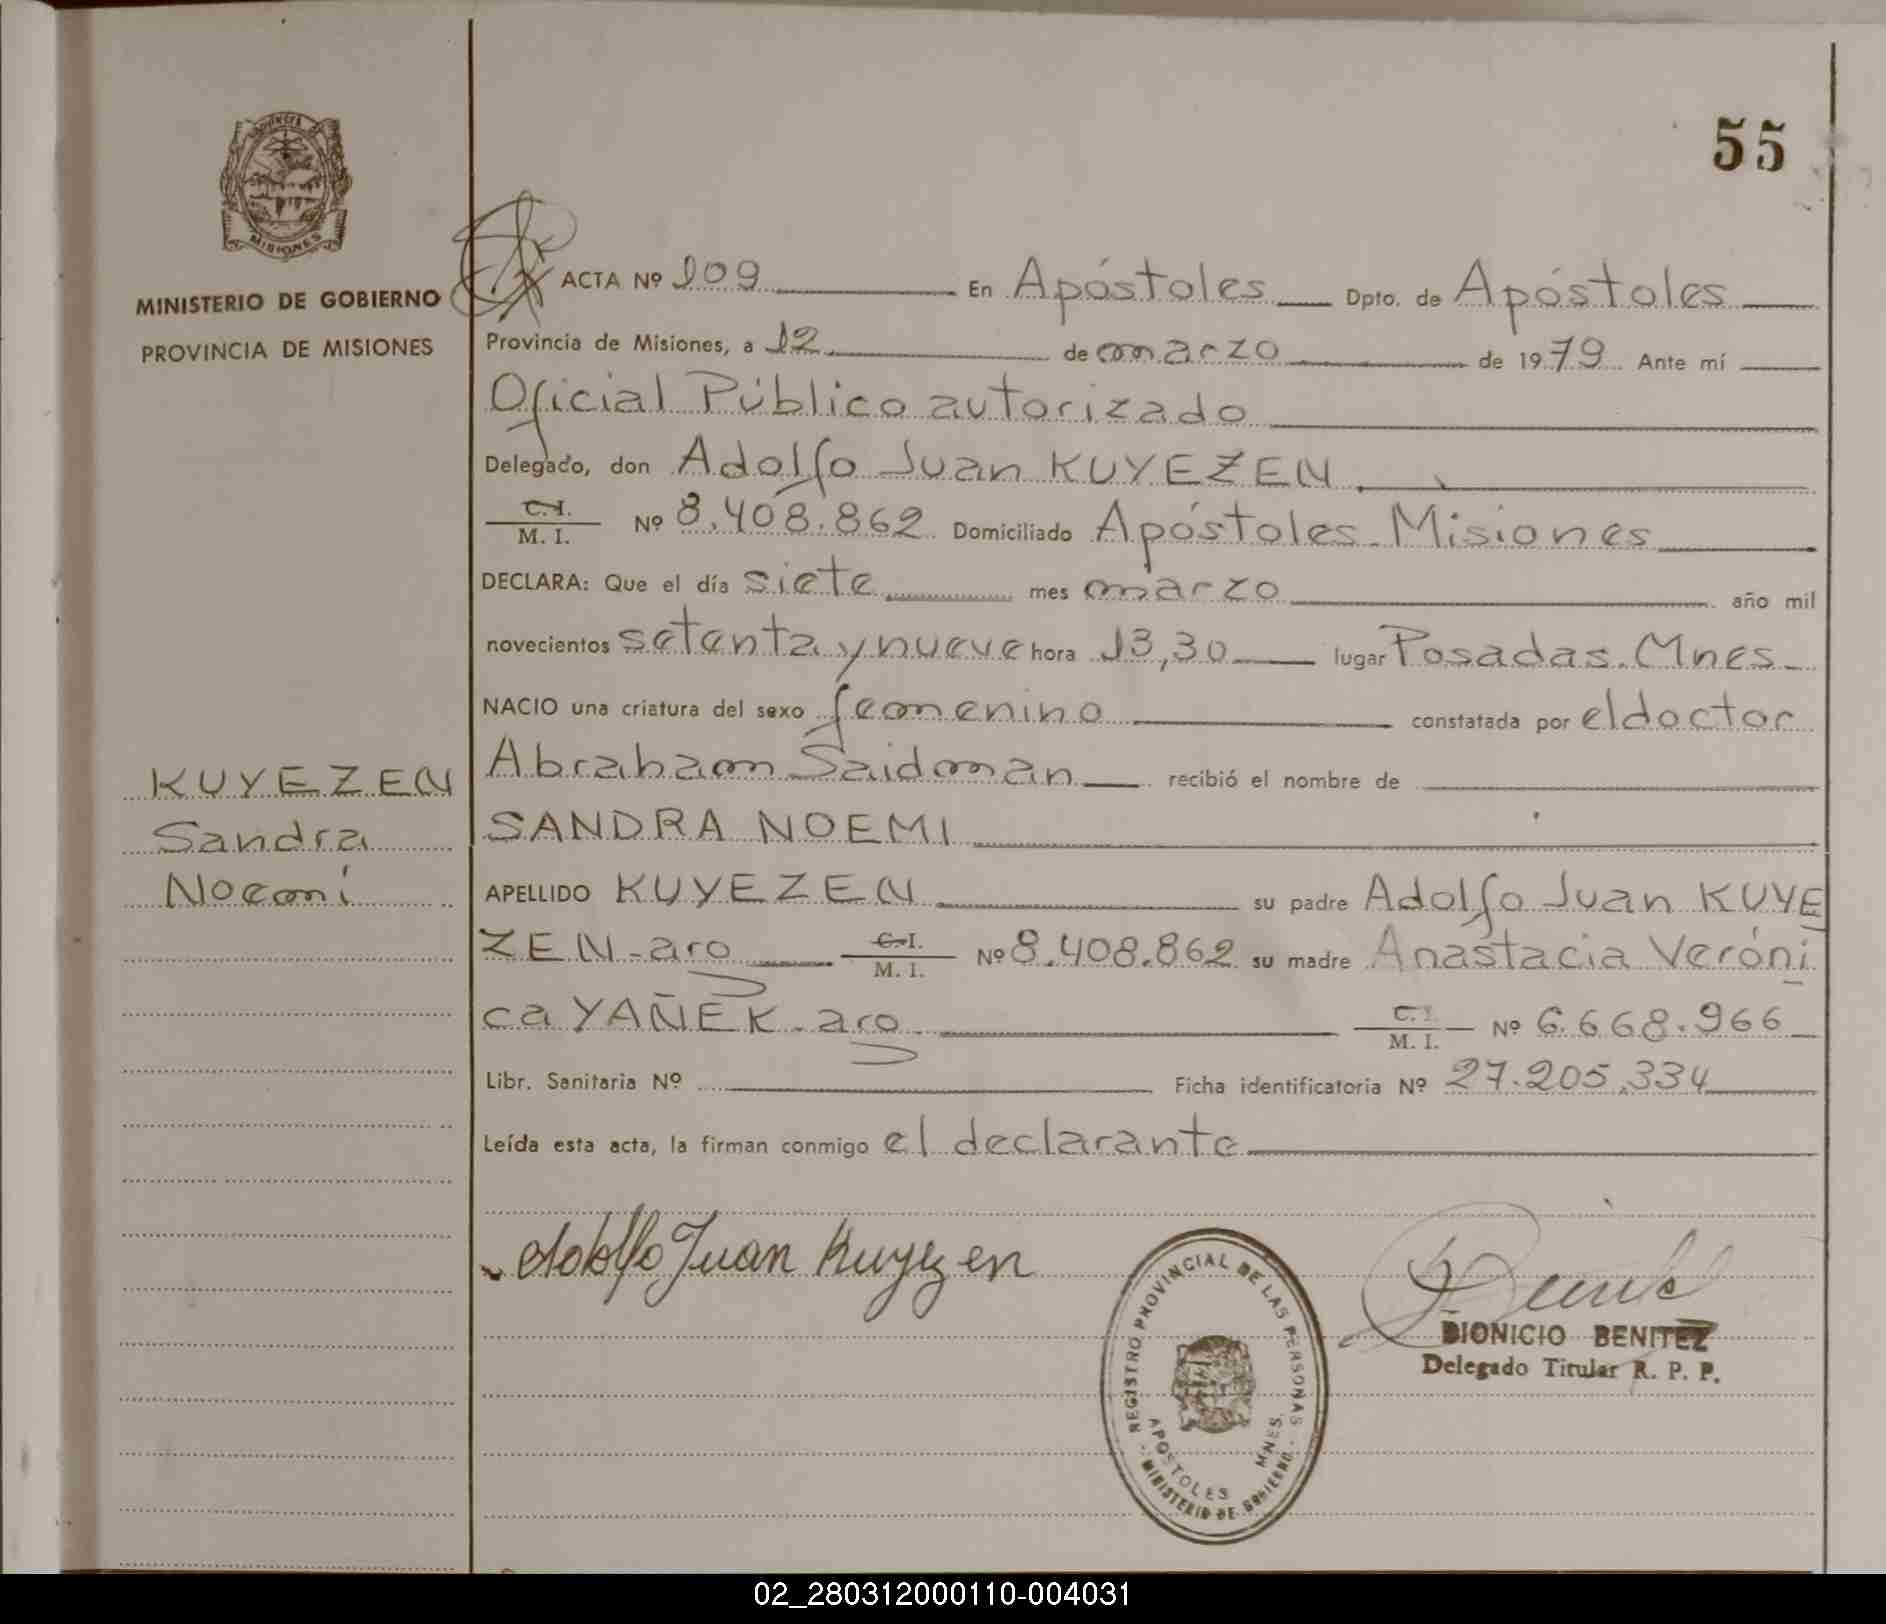 55
MISIONES
MINISTERIO DE GOBIERNO
PROVINCIA DE MISIONES
KUYEZEN
Sandra
Noemi
ACTA Nº 109 En Apóstoles Dpto. de Apóstoles
Provincia de Misiones, a 12 de marzo de 1979 Ante mí
Oficial Público autorizado
Delegado, don Adolfo Juan KUYEZEN
C.I.
M. I. Nº 8.408.862 Domiciliado Apóstoles-Misiones
DECLARA: Que el día siete mes marzo año mil
novecientos setenta y nueve hora 13,30 lugar Posadas-Mnes-
NACIO una criatura del sexo femenino constatada por el doctor
Abraham Saidman recibió el nombre de
SANDRA NOEMI
APELLIDO KUYEZEN su padre Adolfo Juan KUYE
ZEN-aro C.I. M. I. Nº 8.408.862 su madre Anastacia Veróni
ca YAÑEK-aro C.I. M. I. Nº 6.668.966
Libr. Sanitaria Nº Ficha identificatoria Nº 27.205.334
Leída esta acta, la firman conmigo el declarante
Adolfo Juan Kuyezen
REGISTRO PROVINCIAL DE LAS PERSONAS
APOSTOLES MNES.
- MINISTERIO DE GOBIERNO -
DIONICIO BENITEZ
Delegado Titular R. P. P.
02_280312000110-004031